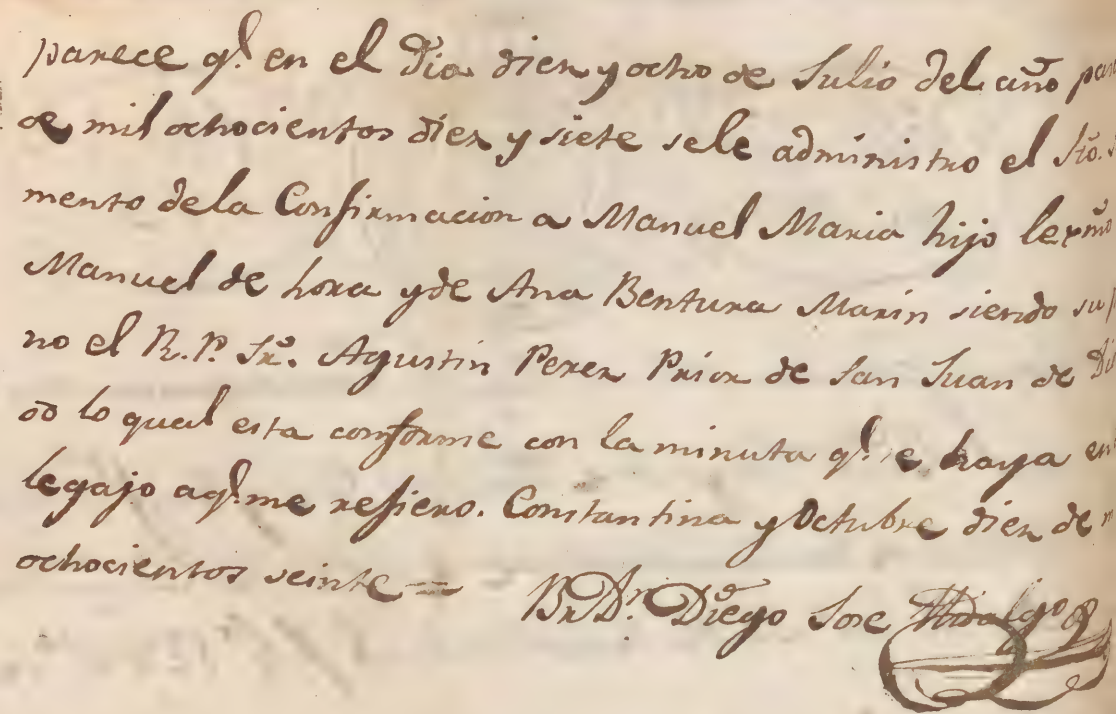 parece q.e en el Dia diez y ocho de Julio del año pa
de mil ochocientos diez y siete sele administro el Sto. S
mento dela Confirmacion a Manuel Maria hijo lexmo
Manuel de Lora yde Ana Bentura Marin siendo su p
no el R. P. Fr. Agustin Perez Prior de San Juan de Di
do lo qual esta conforme con la minuta q.e se haya en
legajo aq.e me refiero. Constantina y Octubre diez de m
ochocientos veinte =
Br. Dn. Diego Jose Hidalgo